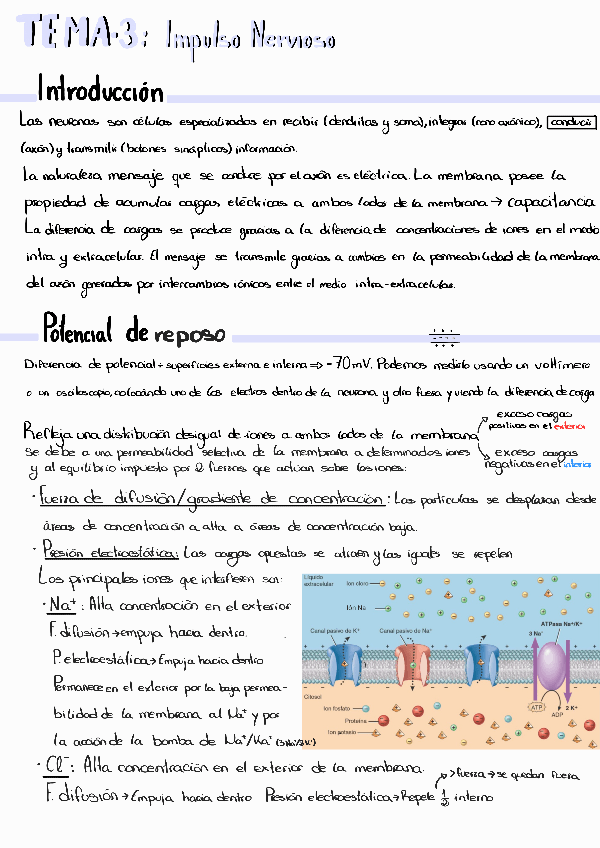 TEMA·3: Impulso Nervioso
Introducción
Las neuronas son células especializadas en recibir (dendritas y soma), integrar (cono axónico), conducir
(axón) y transmitir (botones sinápticos) información.
La naturaleza mensaje que se conduce por el axón es eléctrica. La membrana posee la
propiedad de acumular cargas eléctricas a ambos lados de la membrana → capacitancia
La diferencia de cargas se produce gracias a la diferencia de concentraciones de iones en el medio
intra y extracelular. El mensaje se transmite gracias a cambios en la permeabilidad de la membrana
del axón generados por intercambios iónicos entre el medio intra-extracelular.
Potencial de reposo
Diferencia de potencial ÷ superficies externa e interna ⇒ -70mV. Podemos medirlo usando un voltímero
o un osciloscopio, colocando uno de los electros dentro de la neurona y otro fuera y viendo la diferencia de carga
Refleja una distribución desigual de iones a ambos lados de la membrana
exceso cargas
positivas en el exterior
exceso cargas
negativas en el interior
Se debe a una permeabilidad selectiva de la membrana a determinados iones
y al equilibrio impuesto por 2 fuerzas que actúan sobre los iones:
· Fuerza de difusión/gradiente de concentración: Las partículas se desplazan desde
áreas de concentración a alta a áreas de concentración baja.
· Presión electroestática: Las cargas opuestas se atraen y las iguals se repelen
Los principales iones que interfieren son:
· Na⁺: Alta concentración en el exterior
F. difusión → empuja hacia dentro.
P. electroestática → Empuja hacia dentro
Permanece en el exterior por la baja permea-
bilidad de la membrana al Na⁺ y por
la acción de la bomba de Na⁺/Ka⁺ (3Na⁺/2K⁺)
Líquido
extracelular
Ion cloro
Ión Na
Canal pasivo de K⁺
Canal pasivo de Na⁺
ATPasa Na⁺/K⁺
3 Na⁺
Citosol
Ion fosfato
Proteína
Ion potasio
ATP
ADP
2 K⁺
· Cl⁻: Alta concentración en el exterior de la membrana.
> fuerza → se quedan fuera
F. difusión → Empuja hacia dentro Presión electroestática → Repele ½ interno